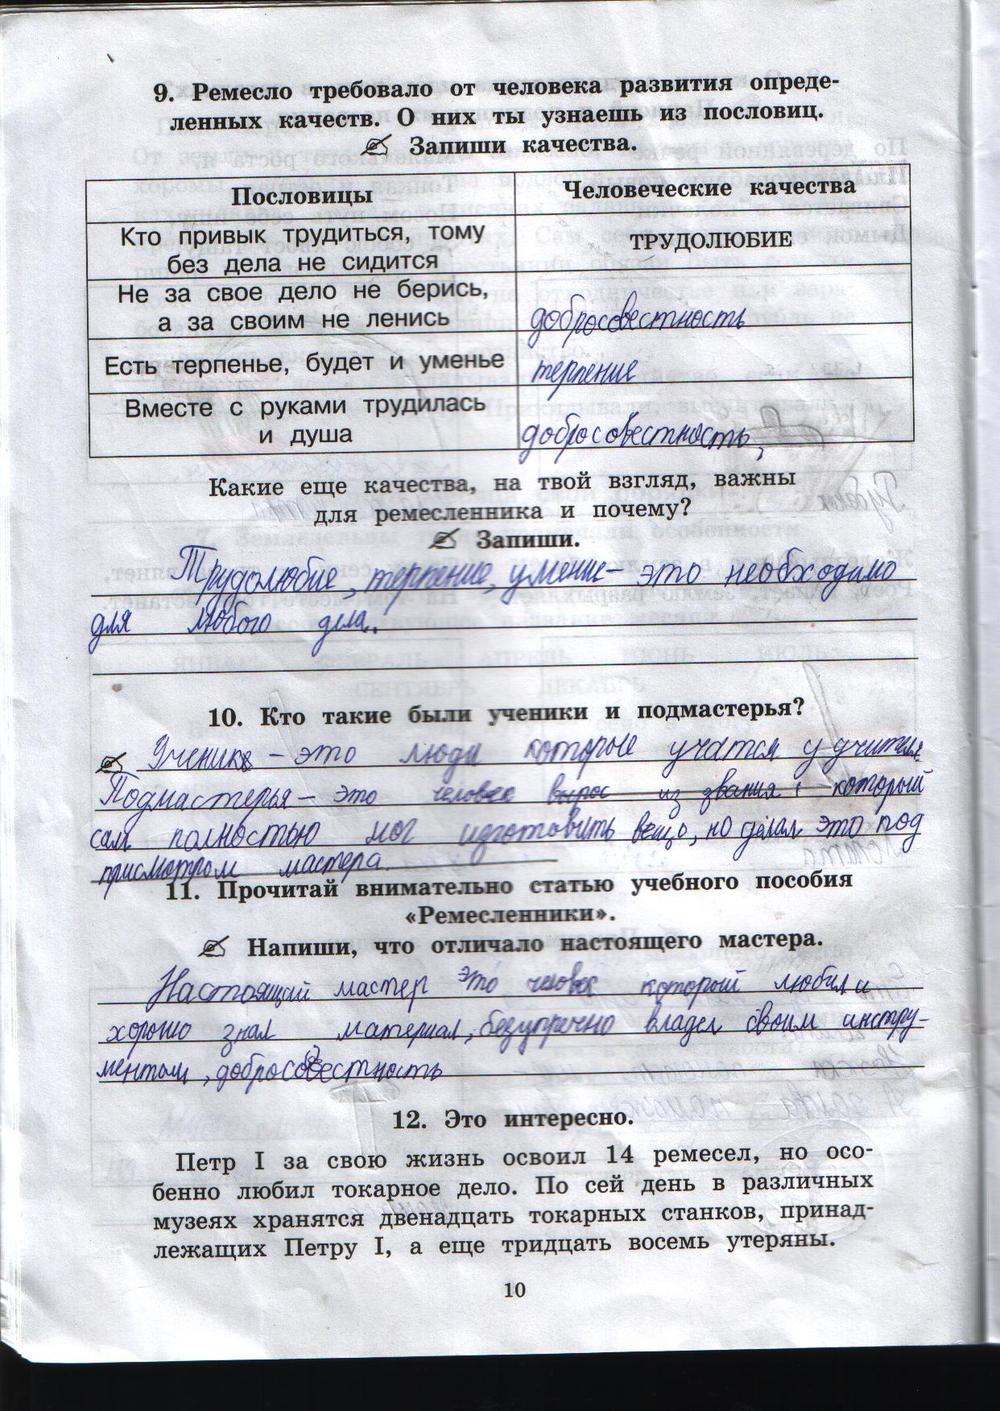 9. Ремесло требовало от человека развития опреде-
ленных качеств. О них ты узнаешь из пословиц.
Запиши качества.
Пословицы
Человеческие качества
Кто привык трудиться, тому
без дела не сидится
ТРУДОЛЮБИЕ
Не за свое дело не берись,
а за своим не ленись
добросовестность
Есть терпенье, будет и уменье
терпение
Вместе с руками трудилась
и душа
добросовестность,
Какие еще качества, на твой взгляд, важны
для ремесленника и почему?
Запиши.
Трудолюбие, терпение, умение – это необходимо
для любого дела.
10. Кто такие были ученики и подмастерья?
Ученик – это люди которые учатся у учителя.
Подмастерья – это человек вырос из звания который
сам полностью мог изготовить вещь, но делал это под
присмотром мастера.
11. Прочитай внимательно статью учебного пособия
«Ремесленники».
Напиши, что отличало настоящего мастера.
Настоящий мастер это человек который любил и
хорошо знал материал, безупречно владел своим инстру-
ментом, добросовестность
12. Это интересно.
Петр I за свою жизнь освоил 14 ремесел, но осо-
бенно любил токарное дело. По сей день в различных
музеях хранятся двенадцать токарных станков, принад-
лежащих Петру I, а еще тридцать восемь утеряны.
10